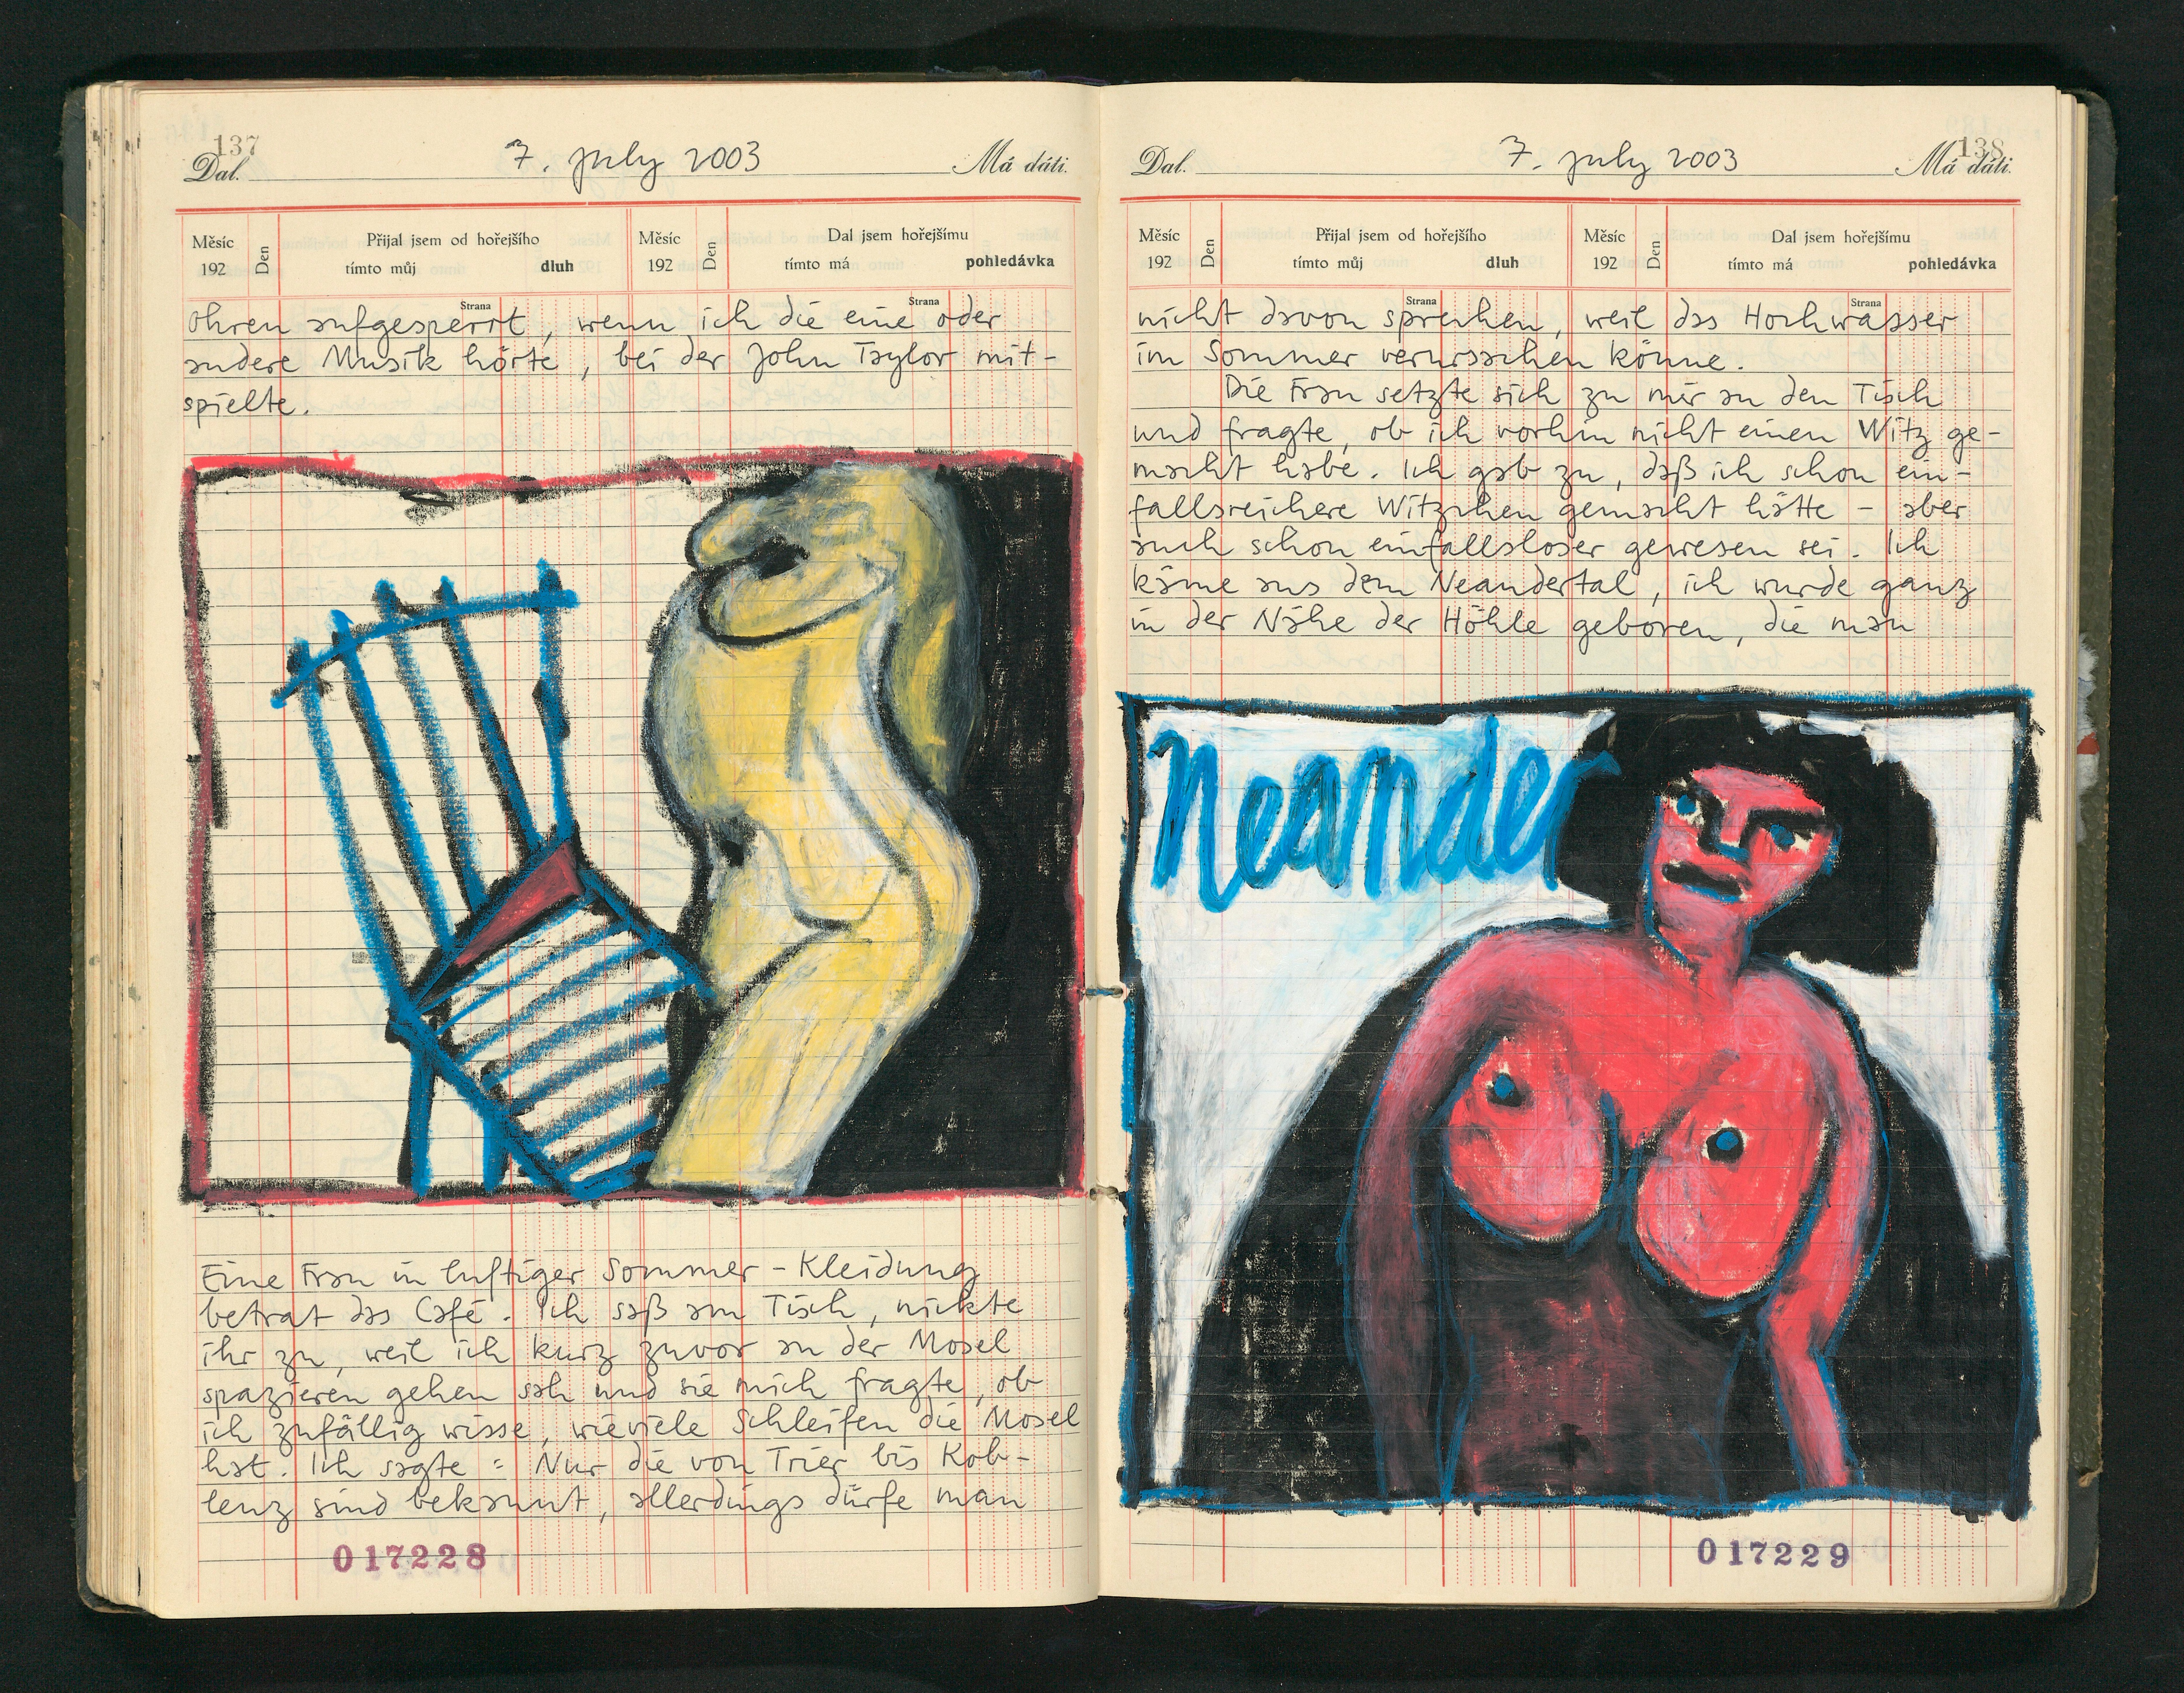 137
Dal.
7. july 2003
Má dáti.
Měsíc
192
Den
Přijal jsem od hořejšího
tímto můj
dluh
Měsíc
192
Den
Dal jsem hořejšímu
tímto má
pohledávka
Strana
Strana
Ohren aufgesperrt, wenn ich die eine oder
andere Musik hörte, bei der John Taylor mit-
spielte.
Eine Frau in luftiger Sommer-Kleidung
betrat das Café. Ich saß am Tisch, nickte
ihr zu, weil ich kurz zuvor an der Mosel
spazieren gehen sah und sie mich fragte, ob
ich zufällig wisse, wieviele Schleifen die Mosel
hat. Ich sagte: Nur die von Trier bis Kob-
lenz sind bekannt, allerdings dürfe man
017228
138
Dal.
7. july 2003
Má dáti.
Měsíc
192
Den
Přijal jsem od hořejšího
tímto můj
dluh
Měsíc
192
Den
Dal jsem hořejšímu
tímto má
pohledávka
Strana
Strana
nicht davon sprechen, weil das Hochwasser
im Sommer verursachen könne.
Die Frau setzte sich zu mir an den Tisch
und fragte, ob ich vorhin nicht einen Witz ge-
macht habe. Ich gab zu, daß ich schon ein-
fallsreichere Witzchen gemacht hätte - aber
auch schon einfallsloser gewesen sei. Ich
käme aus dem Neandertal, ich wurde ganz
in der Nähe der Höhle geboren, die man
Neander
017229